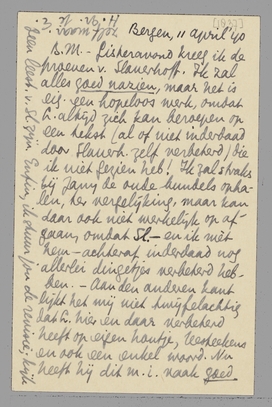 (1937)
Bergen, 11 april '40
B.M. - Gisteravond kreeg ik de
proeven v. Slauerhoff. Ik zal
alles goed nazien, maar het is
eig. een hopeloos werk, omdat
L. altijd zich kan beroepen op
een tekst (al of niet inderdaad
door Slauerh. zelf verbeterd) die
ik niet gezien heb! Ik zal straks
bij Jany de oude bundels opha-
len, ter vergelijking, maar kan
daar ook niet werkelijk op af-
gaan, omdat Sl. - en ik niet
hem - achteraf inderdaad nog
allerlei dingetjes verbeterd heb-
ben. - Aan den anderen kant
lijkt het mij niet twijfelachtig
dat L. hier en daar verbeterd
heeft op eigen houtje, leesteekens
en ook een enkel woord. Nu
heeft hij dit m.i. vaak goed
geen tekst v. Sl. zijn. Enfin, ik stuur jou de revisie; kijk